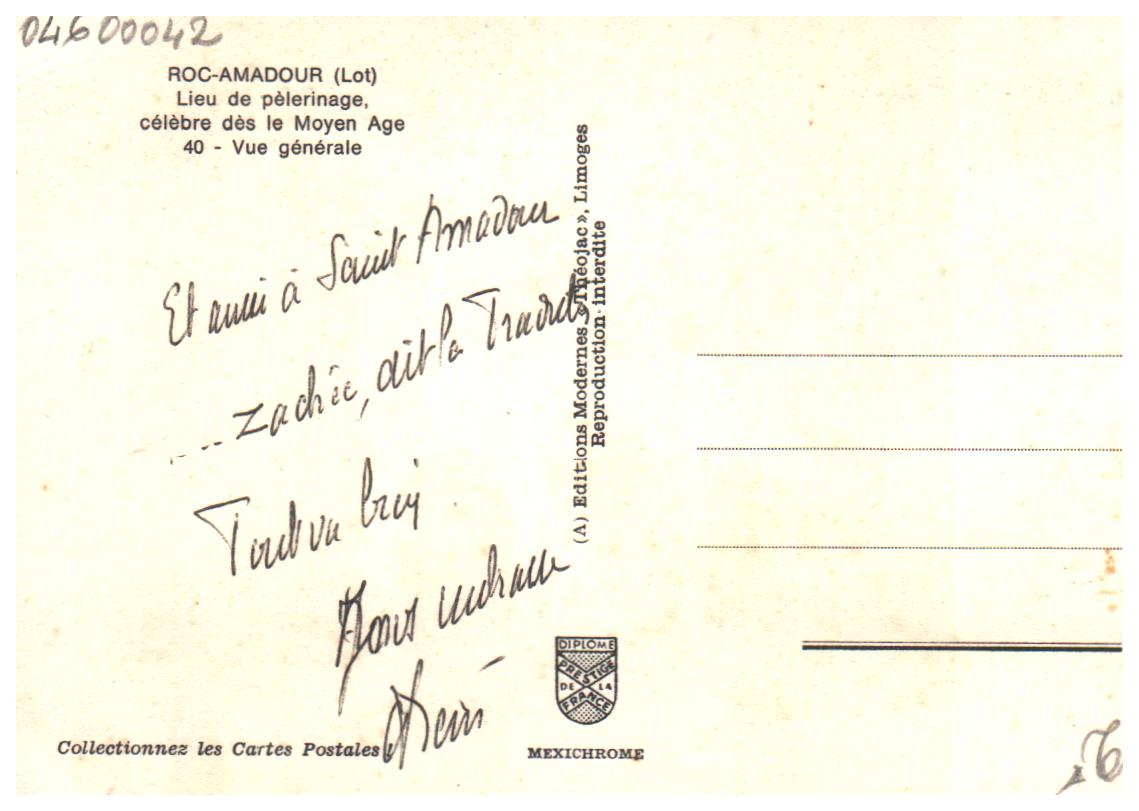 04600042
ROC-AMADOUR (Lot)
Lieu de pèlerinage,
célèbre dès le Moyen Age
40 - Vue générale
Et aussi à Saint Amadour
... Zachée, dit la
Tout va bien
(A) Editions Modernes «Théojac», Limoges
Reproduction interdite
DIPLOME
PRESTIGE
DE LA
FRANCE
Collectionnez les Cartes Postales
MEXICHROME